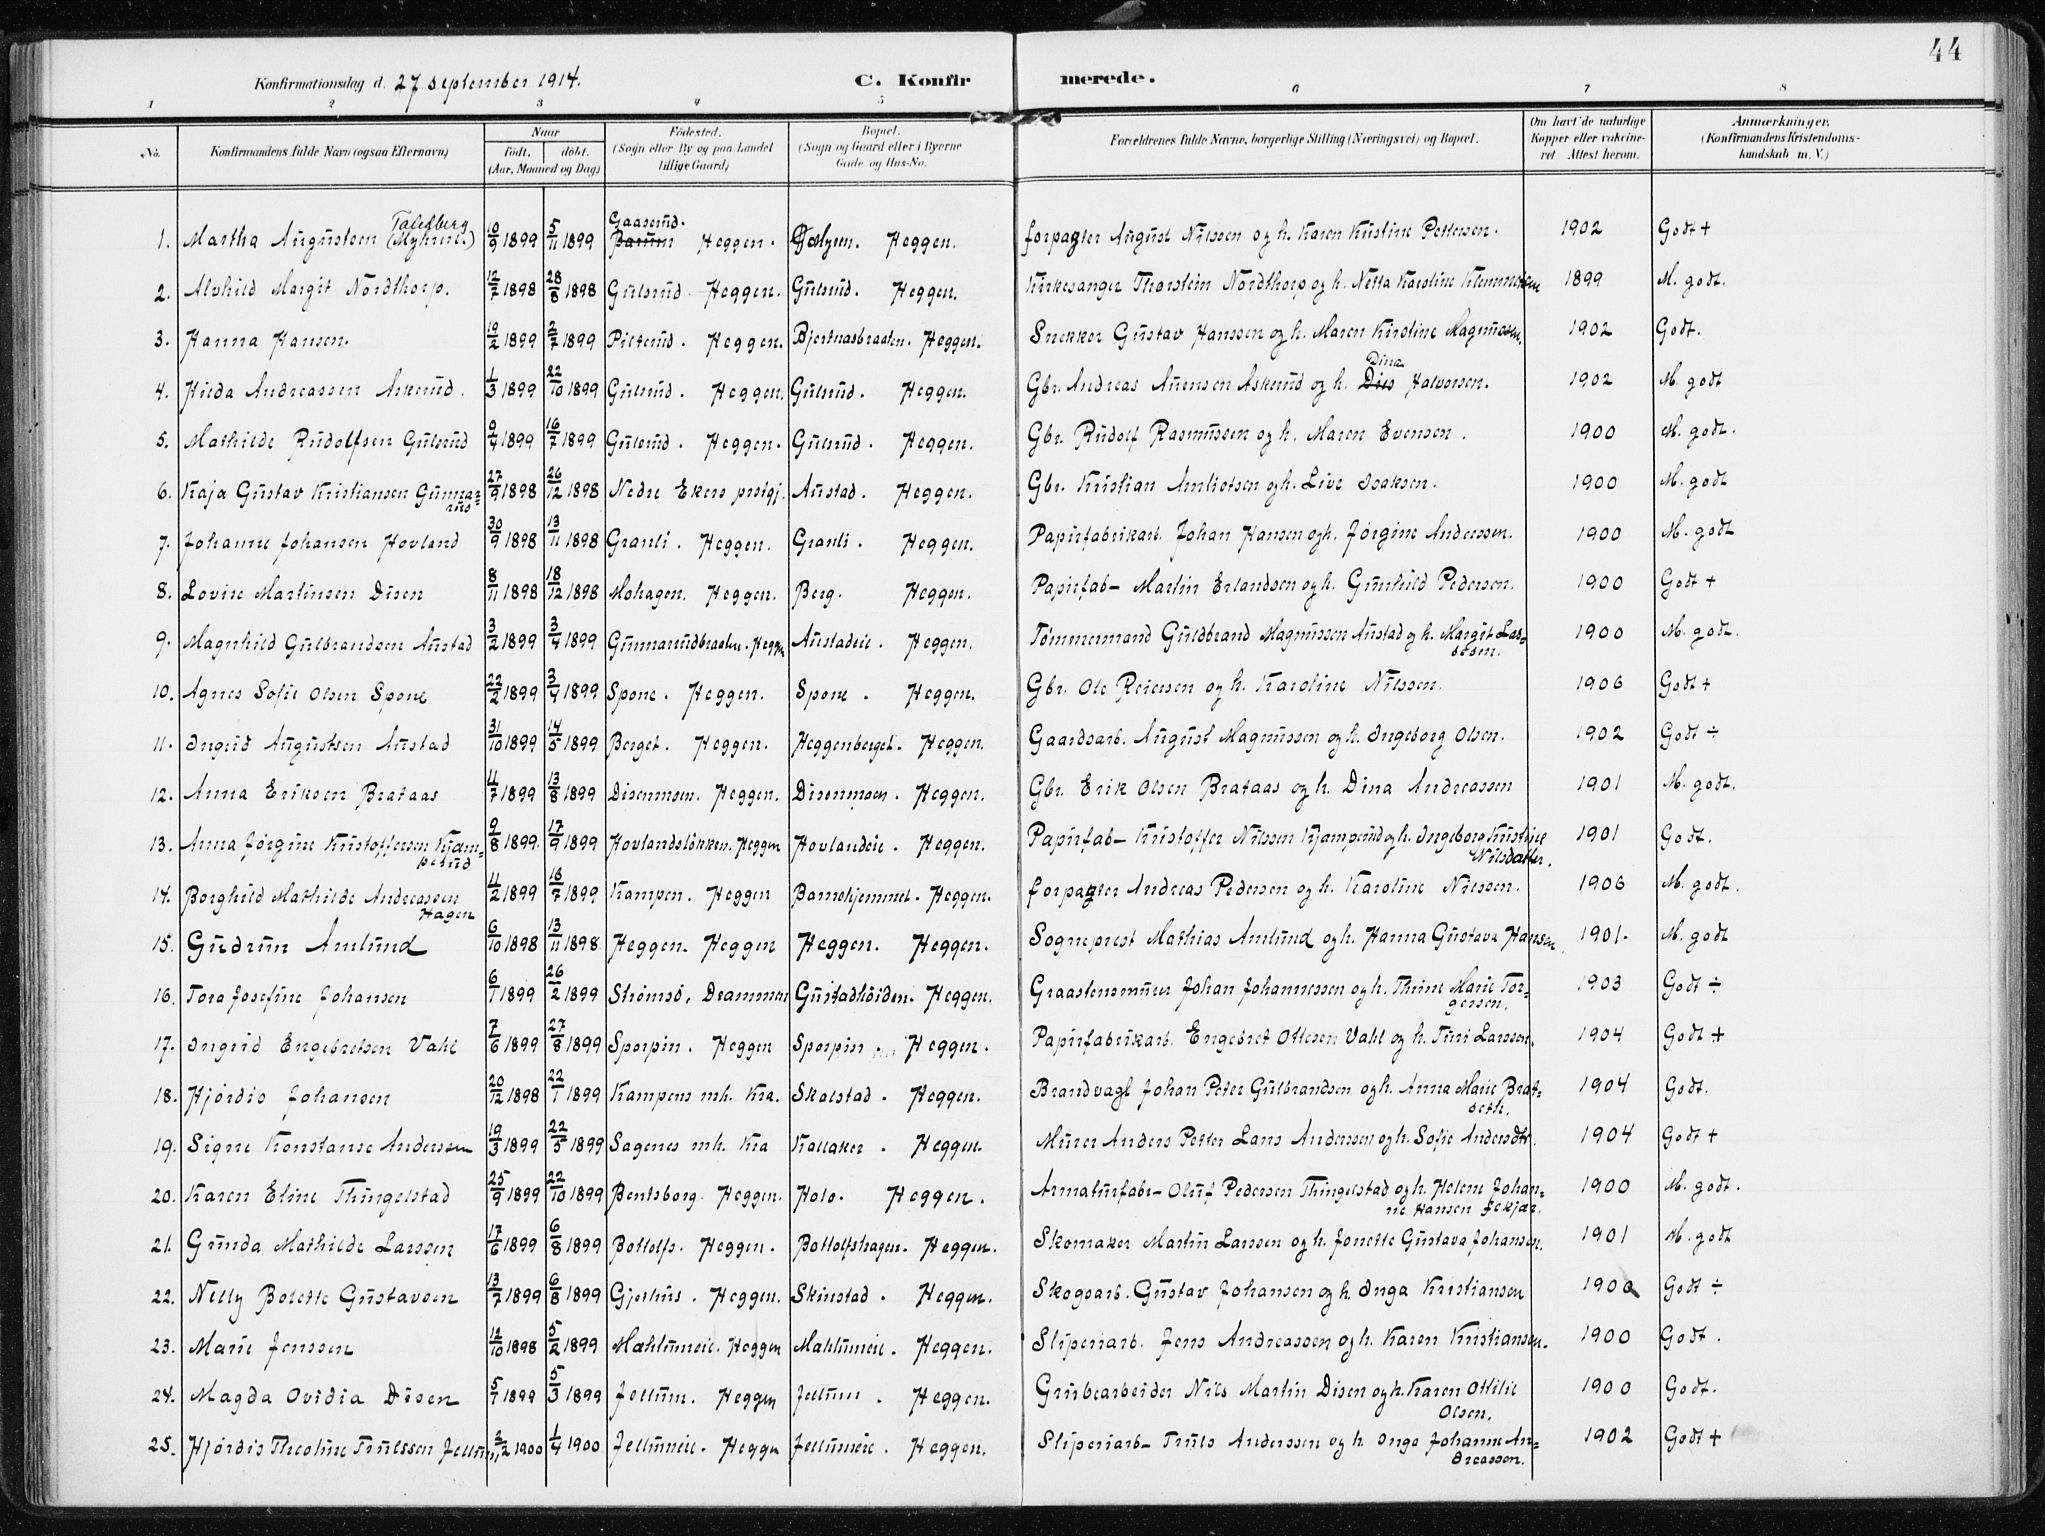 44
Konfirmationsdag d. 27 september 1914. C. Konfirmerede.
1 2 3 4 5 6 7 8
No. Konfirmandens fulde Navn (ogsaa Efternavn) Naar født, døbt. (Aar, Maaned og Dag) Fødested. (Sogn eller By og paa Landet tillige Gaard) Bopæl. (Sogn og Gaard eller i Byerne Gade og Hus-No. Forældrenes fulde Navne, borgerlige Stilling (Næringsvei) og Bopæl. Om havt de naturlige Kopper eller vakcineret Attest herom. Anmærkninger. (Konfirmandens Kristendomskundskab m. V.)
1. Martha Augustsen (Myhren) 10/9 1899 5/11 1899 Gaaserud. Heggen. Heggen. forpagter August Nilssen og h. Karen Kristine Pettersen. 1902 Godt +
2. Alvhild Margit Nordthorp. 12/7 1898 28/8 1898 Gulsrud. Heggen. Gulsrud. Heggen. Kirkesanger Thorstein Nordthorp og h. Netta Karoline Klemmetsen 1899 M. godt.
3. Hanna Hansen. 19/2 1899 2/7 1899 Pilterud. Heggen. Bjertnæsbraaten. Heggen. Snekker Gustav Hanssen og h. Maren Kirstine Magnussen. 1902 Godt.
4. Hilda Andreassen Askerud. 1/3 1899 22/10 1899 Gulsrud. Heggen. Gulsrud. Heggen. Gbr. Andreas Aurensen Askerud og h. Dina Halvorsen. 1902 M. godt
5. Mathilde Rudolfsen Gulsrud 9/4 1899 16/7 1899 Gulsrud. Heggen. Gulsrud. Heggen. Gbr. Rudolf Rasmussen og h. Maren Evensen. 1900 M. godt.
6. Kaja Gustav Kristiansen Gunnarud 27/9 1898 26/12 1898 Nedre Ekers prstgj. Austad. Heggen. Gbr. Kristian Amliotsen og h. Live Isaksen. 1900 M. godt
7. Johanne Johansen Hovland 30/9 1898 13/11 1898 Granli. Heggen. Granli. Heggen. Papirfabrikarb. Johan Hansen og h. Jørgine Anderssen. 1900 M. godt
8. Lovise Martinsen Disen 8/11 1898 18/12 1898 Mohagen. Heggen. Berg. Heggen. Papirfab- Martin Erlandsen og h. Gunhild Pedersen. 1900 Godt +
9. Magnhild Gulbrandsen Austad 3/2 1899 3/4 1899 Gunnarudbraaten. Heggen Austadeie. Heggen. Tømmermand Guldbrand Magnussen Austad og h. Margit Lassesen. 1900 M. godt.
10. Agnes Sofie Olsen Spone 22/2 1899 3/4 1899 Spone. Heggen. Spone. Heggen. Gbr. Ole Reiersen og h. Karoline Nilssen. 1906 Godt +
11. Ingrid Augustsen Austad 31/10 1899 14/5 1899 Berget. Heggen. Heggenberget. Heggen. Gaardsarb. August Magnussen og h. Ingeborg Olsen. 1902 Godt ÷
12. Anna Eriksen Brataas 11/7 1899 13/8 1899 Disenmoen. Heggen. Disenmoen. Heggen. Gbr. Erik Olsen Brataas og h. Dina Andreassen 1901 M. godt.
13. Anna Jørgine Kristoffersen Kjæmperud 9/8 1899. 17/9 1899 Hovlandsløkken. Heggen Hovlandeie. Heggen. Papirfab- Kristoffer Nilssen Kjæmperud og h. Ingeborg Kristine Nilsdatter. 1901 Godt.
14. Borghild Mathilde Andreassen Hagen 11/2 1899 16/7 1899 Kampen. Heggen Barnehjemmet. Heggen. forpagter Andreas Pedersen og h. Karoline Nilssen. 1906 M. godt.
15. Gudrun Amlund 6/10 1898 13/11 1898. Heggen. Heggen Heggen. Heggen. Sogneprest Mathias Amlund og h. Hanna Gustava Hansen 1901. M. godt
16. Tora Josefine Johansen 6/1 1899 26/2 1899 Strømsø, Drammen Gustadhøiden. Heggen. Graastensmurer Johan Johannessen og h. Thrine Marie Torgersen. 1903 Godt ÷
17. Ingrid Engebretsen Vahl 7/6 1899 27/8 1899 Sporpin. Heggen Sporpin. Heggen. Papirfabrikarb. Engebret Ottesen Vahl og h. Turi Larssen. 1904 Godt +
18. Hjørdis Johansen 20/12 1898 22/1 1899 Kampens mh. Kra. Skalstad. Heggen. Brandvagt Johan Peter Gulbrandsen og h. Anna Marie Bratseth. 1904 Godt.
19. Signe Konstanse Anderssen 19/3 1899 22/5 1899 Sagenes mh. Kra Kallaker. Heggen. Murer Anders Petter Lars Anderssen og h. Sofie Andersdtr. 1904 Godt +
20. Karen Eline Thingelstad 25/9 1899 22/10 1899 Bentsborg. Heggen. Holo. Heggen. Armaturfabr- Oluf Pedersen Thingelstad og h. Helene Johanne Hansen Fekjær. 1900 M. godt.
21. Gunda Mathilde Larssen 17/6 1899 6/8 1899 Bottolfs. Heggen. Bottolfshagen. Heggen. Skomaker Martin Larssen og h. Jonette Gustava Johansen. 1901 M. godt
22. Nelly Bolette Gustavsen 13/7 1899 6/8 1899 Gjethus. Heggen. Skinstad. Heggen. Skogsarb. Gustav Johansen og h. Inga Kristiansen 1900 Godt ÷
23. Marie Jenssen 12/10 1898 5/2 1899 Mæhlumeie. Heggen Mæhlumeie. Heggen. Sliperiarb. Jens Andreassen og h. Karen Kristiansen. 1900 Godt.
24. Magda Ovidia Disen 5/1 1899 5/3 1899 Jellum. Heggen Jellum. Heggen. Grubearbeider Nils Martin Disen og h. Karen Ottilie Olsen. 1900 Godt.
25. Hjørdis Theoline Trulssen Jellum 2/2 1900 1/4 1900 Jellumeie. Heggen Jellumeie. Heggen. Sliperiarb- Truls Anderssen og h. Inga Johanne Andreassen. 1902 Godt +